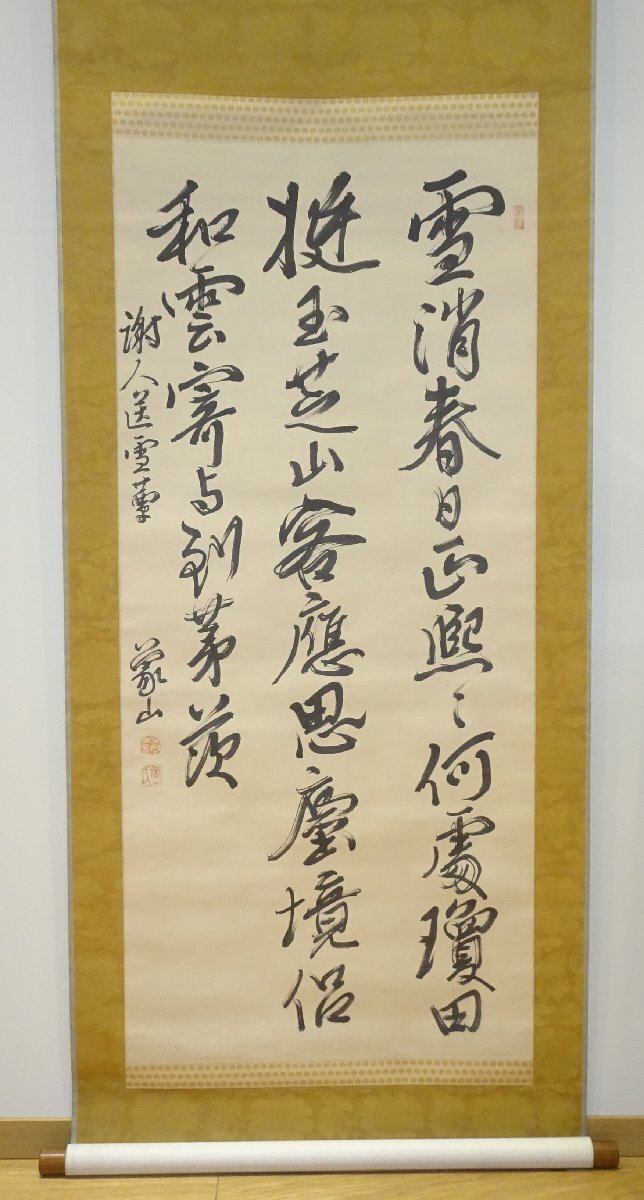 雪消春日正熙〻何處瓊田
挺玉芝山客應思塵境侶
和雲寄与到茅茨
謝人送雪蕈
蒙山